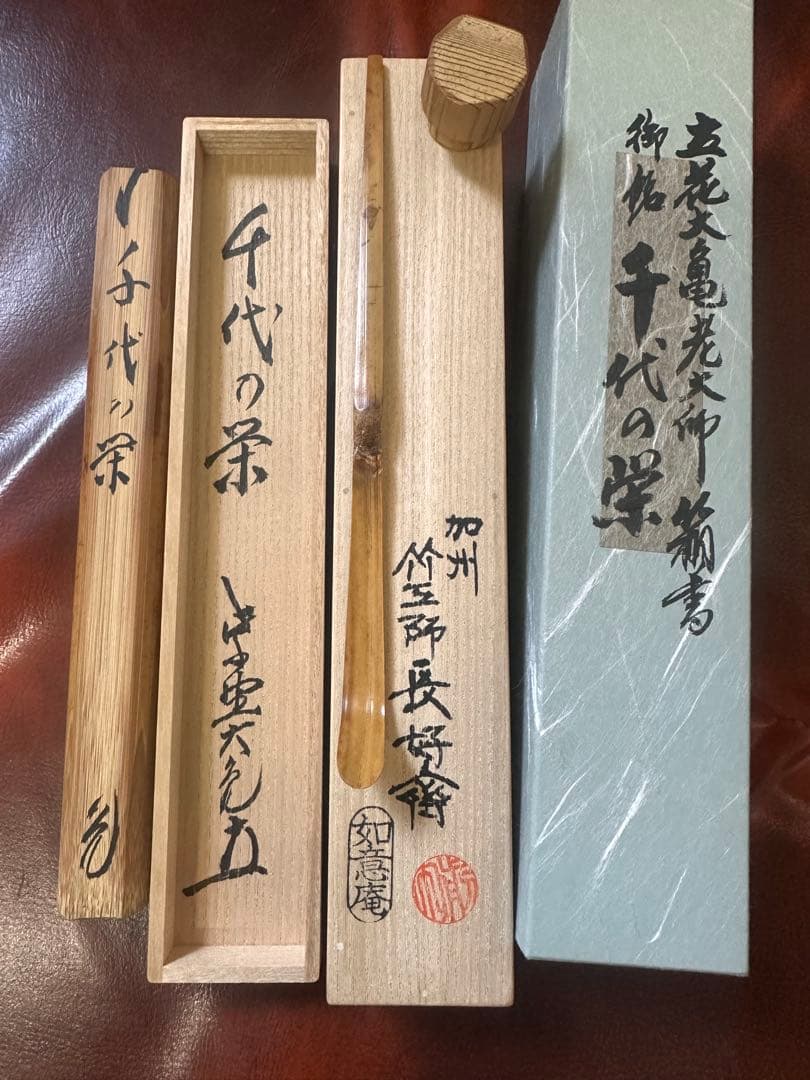 立花大亀老大師 箱書
御銘 千代の栄
竹工師 長好斎
如意庵
千代の栄
千代の栄